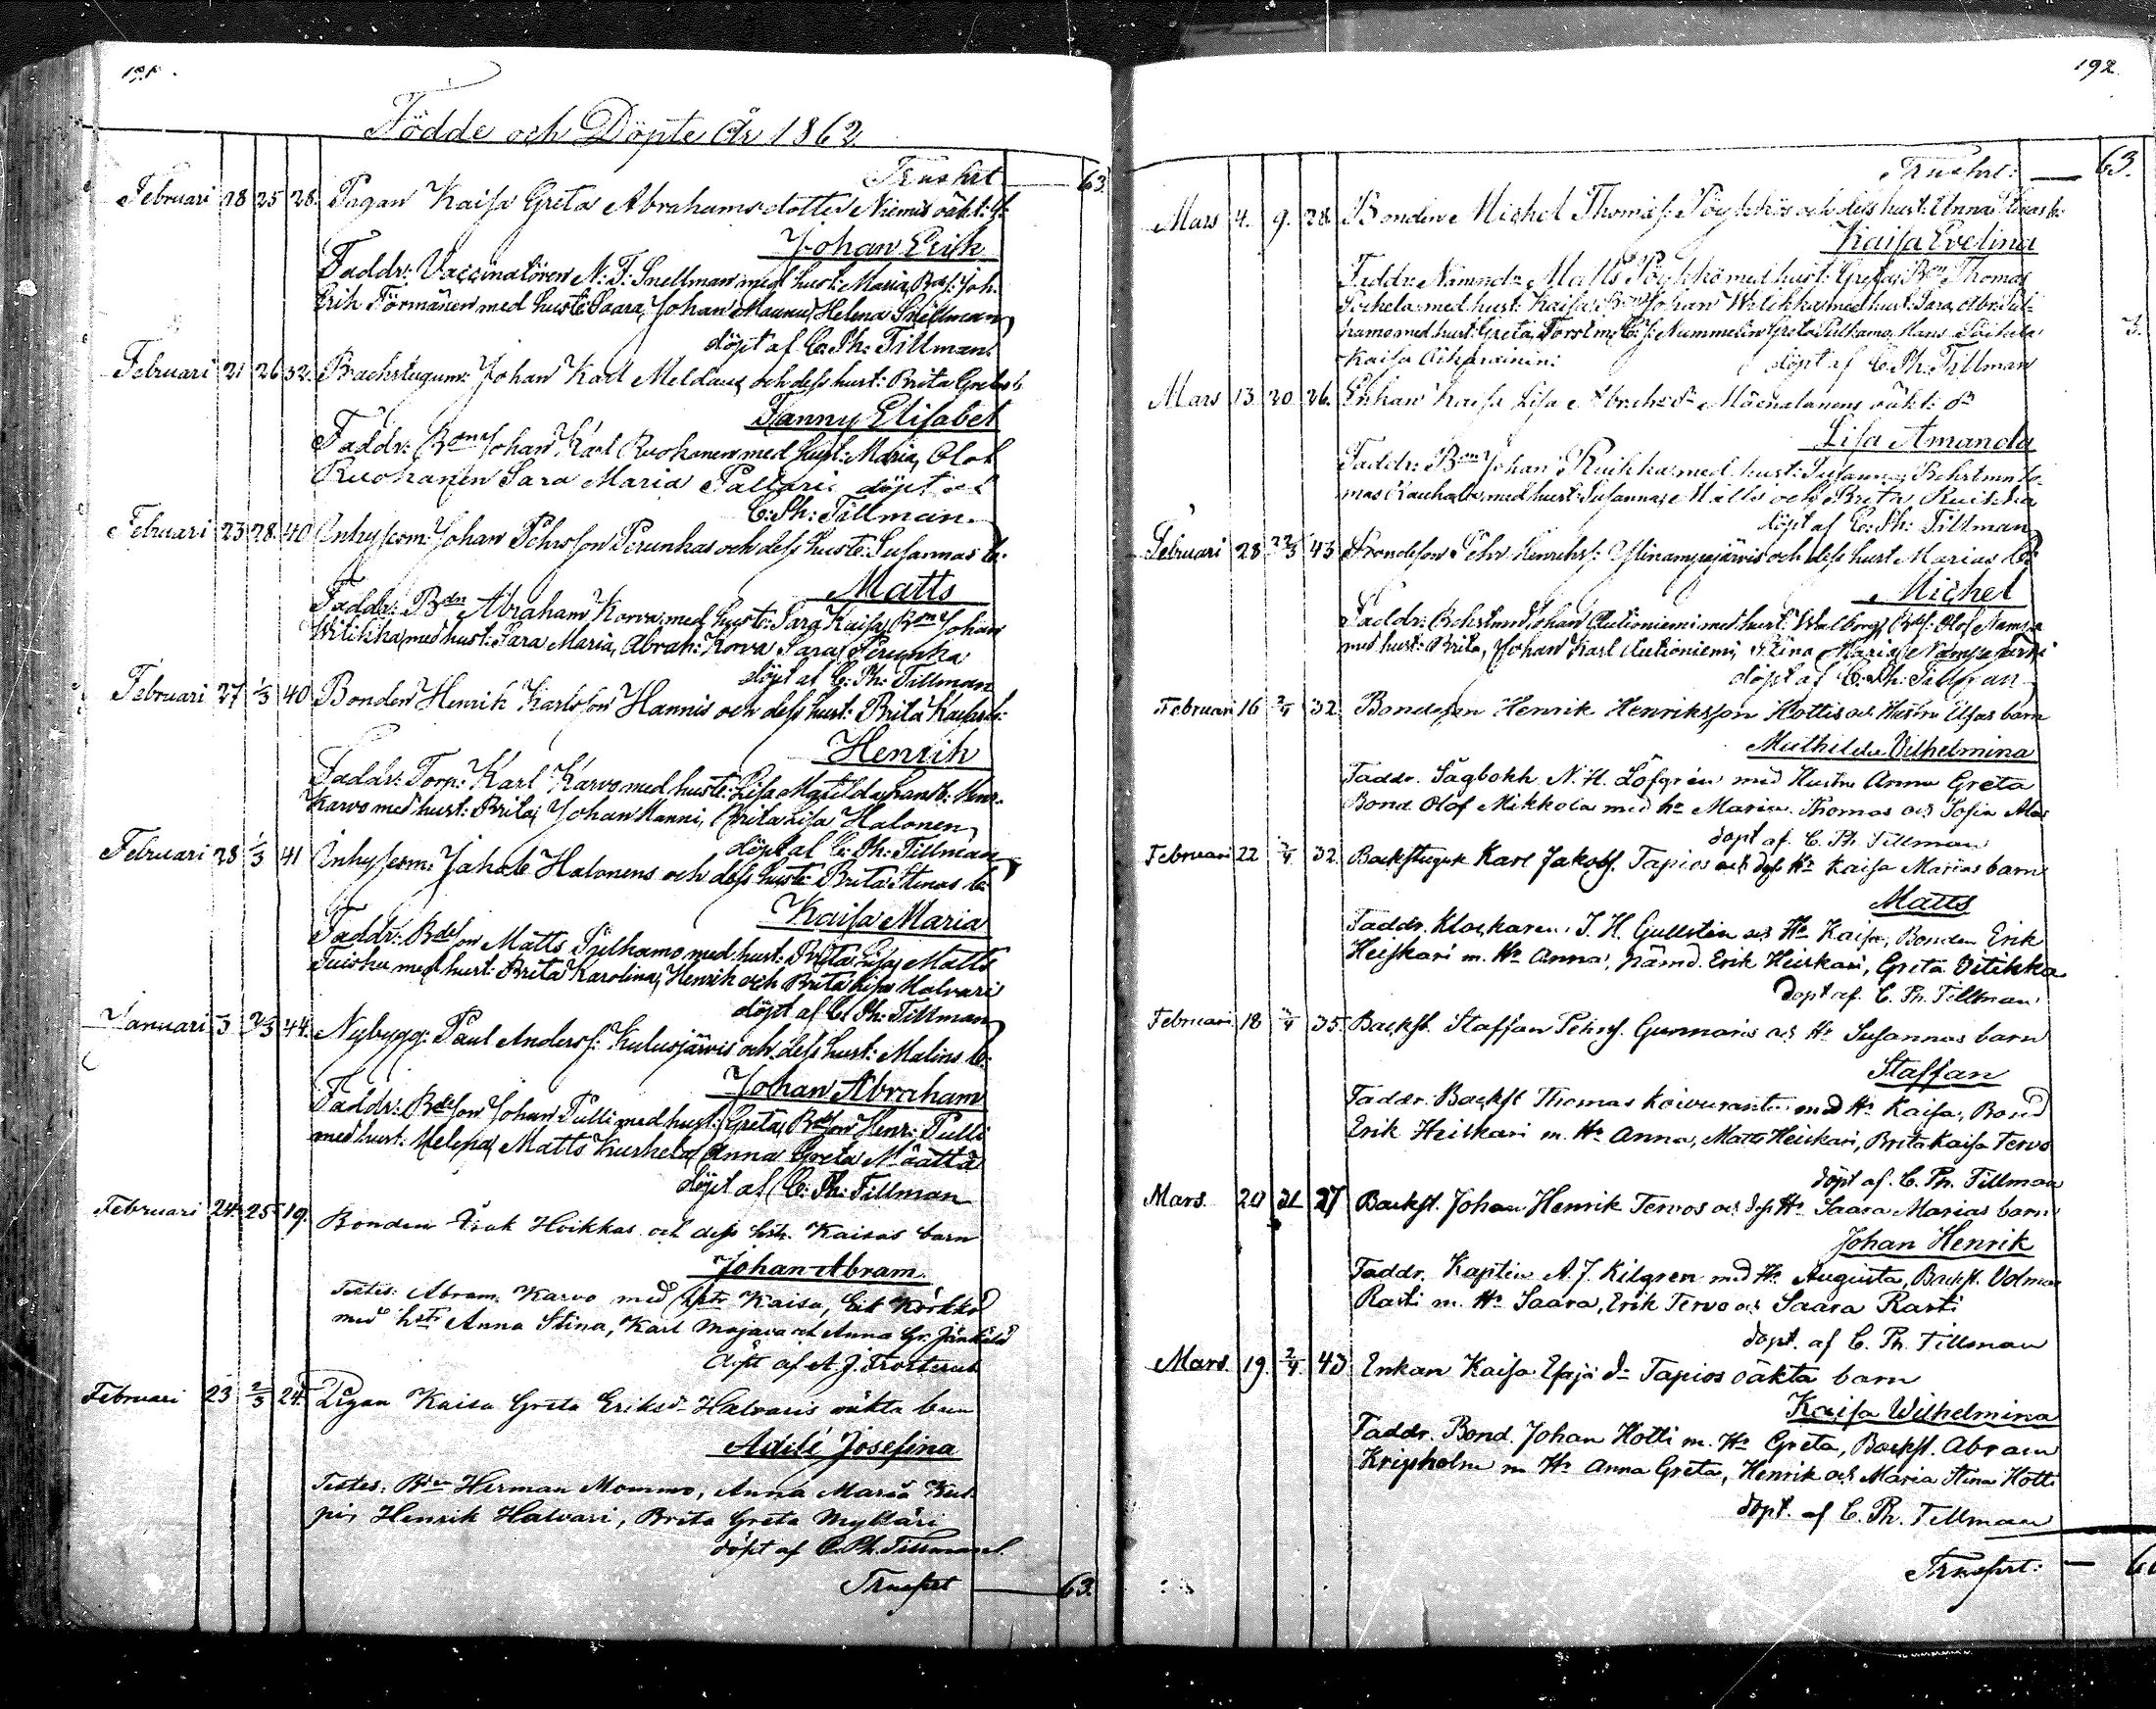 191.
Födde och Döpte År 1862.
Trnsprt 63
Februari 28 25 28. Pigan Kaisa Greta Abrahamsdotter Niemis oäkt: b:
Johan Erik
Faddr: Vaccinatören N. F. Snellman med hust: Maria, Bds: Joh.
Erik Förmänen med hust: Saara, Johan Maunu, Helena Snellman,
döpt af C. Ph: Tillman.
Februari 21 26 32. Backstugum: Johan Karl Meldaus och dess hust: Brita Gretas b.
Fanny Elisabet
Faddr: Bonn Johan Karl Ruohonen med hust: Maria, Olof
Ruohanen Sara Maria Pallari döpt af
C: Ph: Tillman.
Februari 23 28 40 Inhyses m: Johan Pehrsson Perunkas och dess hust: Susannas b:
Matts
Faddr: Bdn Abraham Korva med hust: Sara Kaisa, Bonn Johan
Witikka, med hust: Sara Maria, Abrah: Korva Sara Perunka
döpt af C: Ph: Tillman
Februari 27 1/3 40 Bonden Henrik Karlsson Hannis och dess hust: Brita Kaisas b:
Henrik
Faddr: Torp: Karl Karvo med hust: Lisa Matilda, Henr.
Karvo med hust: Brita, Johan Hanni, Brita Lisa Halonen,
döpt af C: Ph: Tillman
Februari 28 1/3 41 Inhyses m: Jakob Halonens och dess hust: Brita Stinas b:
Kaisa Maria
Faddr: Bdeson Matts Sulhamo med hust: Brita Lisa, Matts
Tuisku med hust: Brita Karolina, Henrik och Brita Lisa Halvari
döpt af C: Ph: Tillman
Januari 3 2/3 44. Nybygg: Paul Anders s: Kulusjärvis och dess hust: Malins b:
Johan Abraham
Faddr: Bdeson Johan Pulli med hust: Greta, Bdeson Henr: Pulli
med hust: Helena, Matts Kurkela, Anna Greta Määttä
döpt af C: Ph: Tillman
Februari 24. 25 19. Bonden Erik Hoikkas och dess hstr. Kaisas barn
Johan Abram
Testes: Abram Karvo med hstr Kaisa, Erik Körkkö
med hstr Anna Stina, Karl Mojava och Anna Gr. Jänkälä
döpt af A. J.
Februari 23 2/3 24. Pigan Kaisa Greta Eriksdr Halvaris oäkta barn
Adili Josefina
Testes: Bdn Herman Mommo, Anna Maria
Henrik Halvari, Brita Greta Myllari
döpt af C. Ph. Tillman
Trnsprt 63.
192
Trnsprt: 63.
Mars 4. 9. 28. Bonden Michel Thomas s: Pöykkös och dess hust: Anna Stinas b:
Kaisa Evelina
Faddr: Nämndn Matts Pöykkö med hust: Greta, Bon Thomas
Sockela med hust: Kaisa, Bon Johan Witikka med hust: Sara, Abr: Sul-
hamo med hust: Greta, Nummelin Greta Sulhamo, Hans Sockela
Kaisa döpt af C. Ph. Tillman
3.
Mars 13 20 26. Enkan Kaisa Lisa Abrah: dr Määnalanens oäkt: b
Lisa Amanda
Faddr: Bon Johan Ruikka med hust: Susanna, Bckstmn To-
mas Kauhala med hust: Susanna, Matts och Brita Ruikka
döpt af C: Ph: Tillman
Februari 28 22/3 43 Bondeson Pehr Henriks s: Ylinampajärvis och dess hust Marias b:
Michel
Faddr: Bckstmn Johan Autioniemi med hust: Walborg, Bds: Olof Nampa
med hust: Brita, Johan Karl Autioniemi, Stina Maria Nampajärvi
döpt af C. Ph. Tillman
Februari 16 2/4 32 Bondeson Henrik Henriksson Hottis och Hustru Ulfas barn
Mathilda Vilhelmina
Faddr. Sågbokh. N. H. Löfgrén med Hustru Anna Greta
Bond. Olof Mikkola med Hu Maria. Thomas och Sofia
döpt af. C. Ph. Tillman
Februari 22 2/4 32. Backstuguk. Karl Jakobs. Tapios och dess Hu Kaisa Marias barn
Matts
Faddr. Klockaren I. H. Gullstén och Hu Kaisa, Bonden Erik
Heiskari m. Hu Anna, nämd. Erik Heiskari, Greta Vitikka
döpt af. C. Ph. Tillman
Februari 18 2/4 35. Backst. Staffan Pehrs. Gunnaris och Hu Susannas barn
Staffan
Faddr. Backst Thomas Koivuranta med Hu Kaisa, Bond
Erik Heiskari m. Hu Anna, Matts Heiskari, Brita Kaisa Tervo
döpt af. C. Ph. Tillman
Mars. 20 21 27 Backst. Johan Henrik Tervos och dess Hu Saara Marias barn
Johan Henrik
Faddr. Kapten A. J. Kilgren med Hu Augusta, Backst. Volmar
Rasti m. Hu Saara, Erik Tervo och Saara Rasti
döpt. af C. Ph. Tillman
Mars. 19. 2/4. 43 Enkan Kaisa Esaja dr Tapios oäkta barn
Kaisa Wilhelmina
Faddr. Bond. Johan Hotti m. Hu Greta, Backst. Abram
Kripholm m Hu Anna Greta, Henrik och Maria Stina Hotti
döpt. af C. Ph. Tillman
Trnsprt: